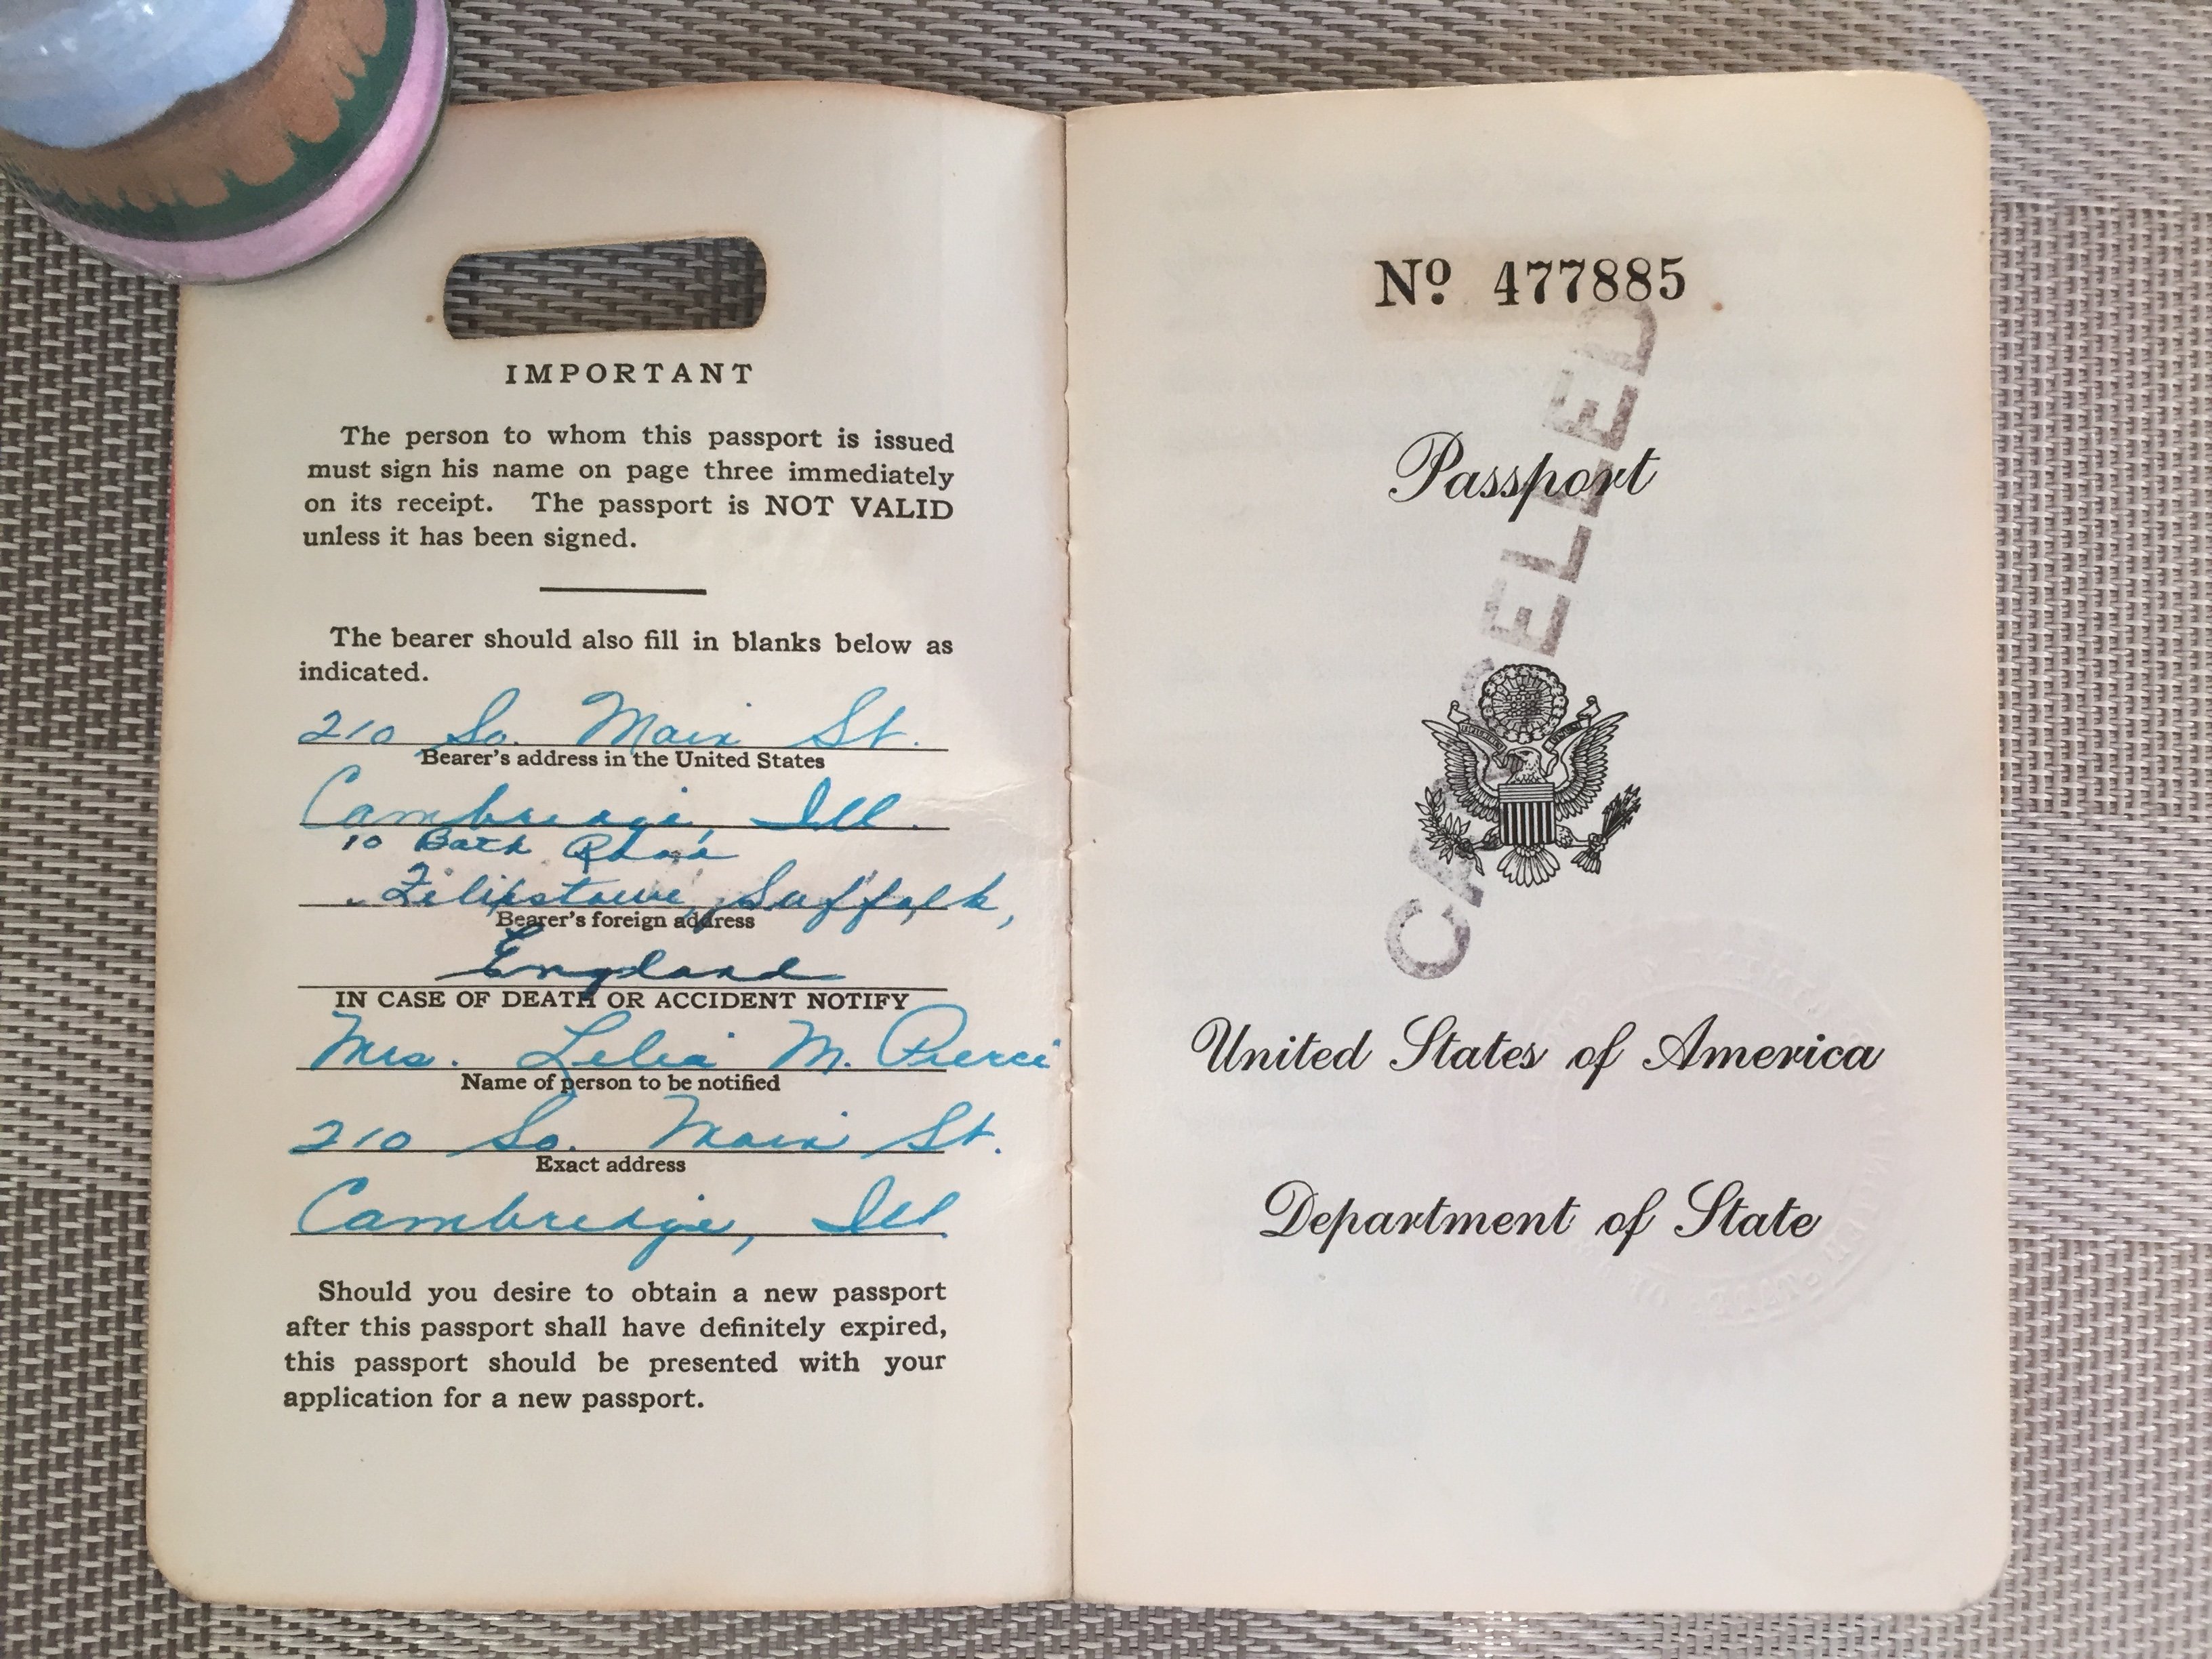 IMPORTANT
The person to whom this passport is issued
must sign his name on page three immediately
on its receipt. The passport is NOT VALID
unless it has been signed.
The bearer should also fill in blanks below as
indicated.
210 So. Main St.
Bearer's address in the United States
Cambridge, Ill.
10 Bath Road
Felixstowe, Suffolk,
Bearer's foreign address
England
IN CASE OF DEATH OR ACCIDENT NOTIFY
Mrs. Lelia M. Pierce
Name of person to be notified
210 So. Main St.
Exact address
Cambridge, Ill.
Should you desire to obtain a new passport
after this passport shall have definitely expired,
this passport should be presented with your
application for a new passport.
Nº 477885
CANCELLED
Passport
United States of America
Department of State